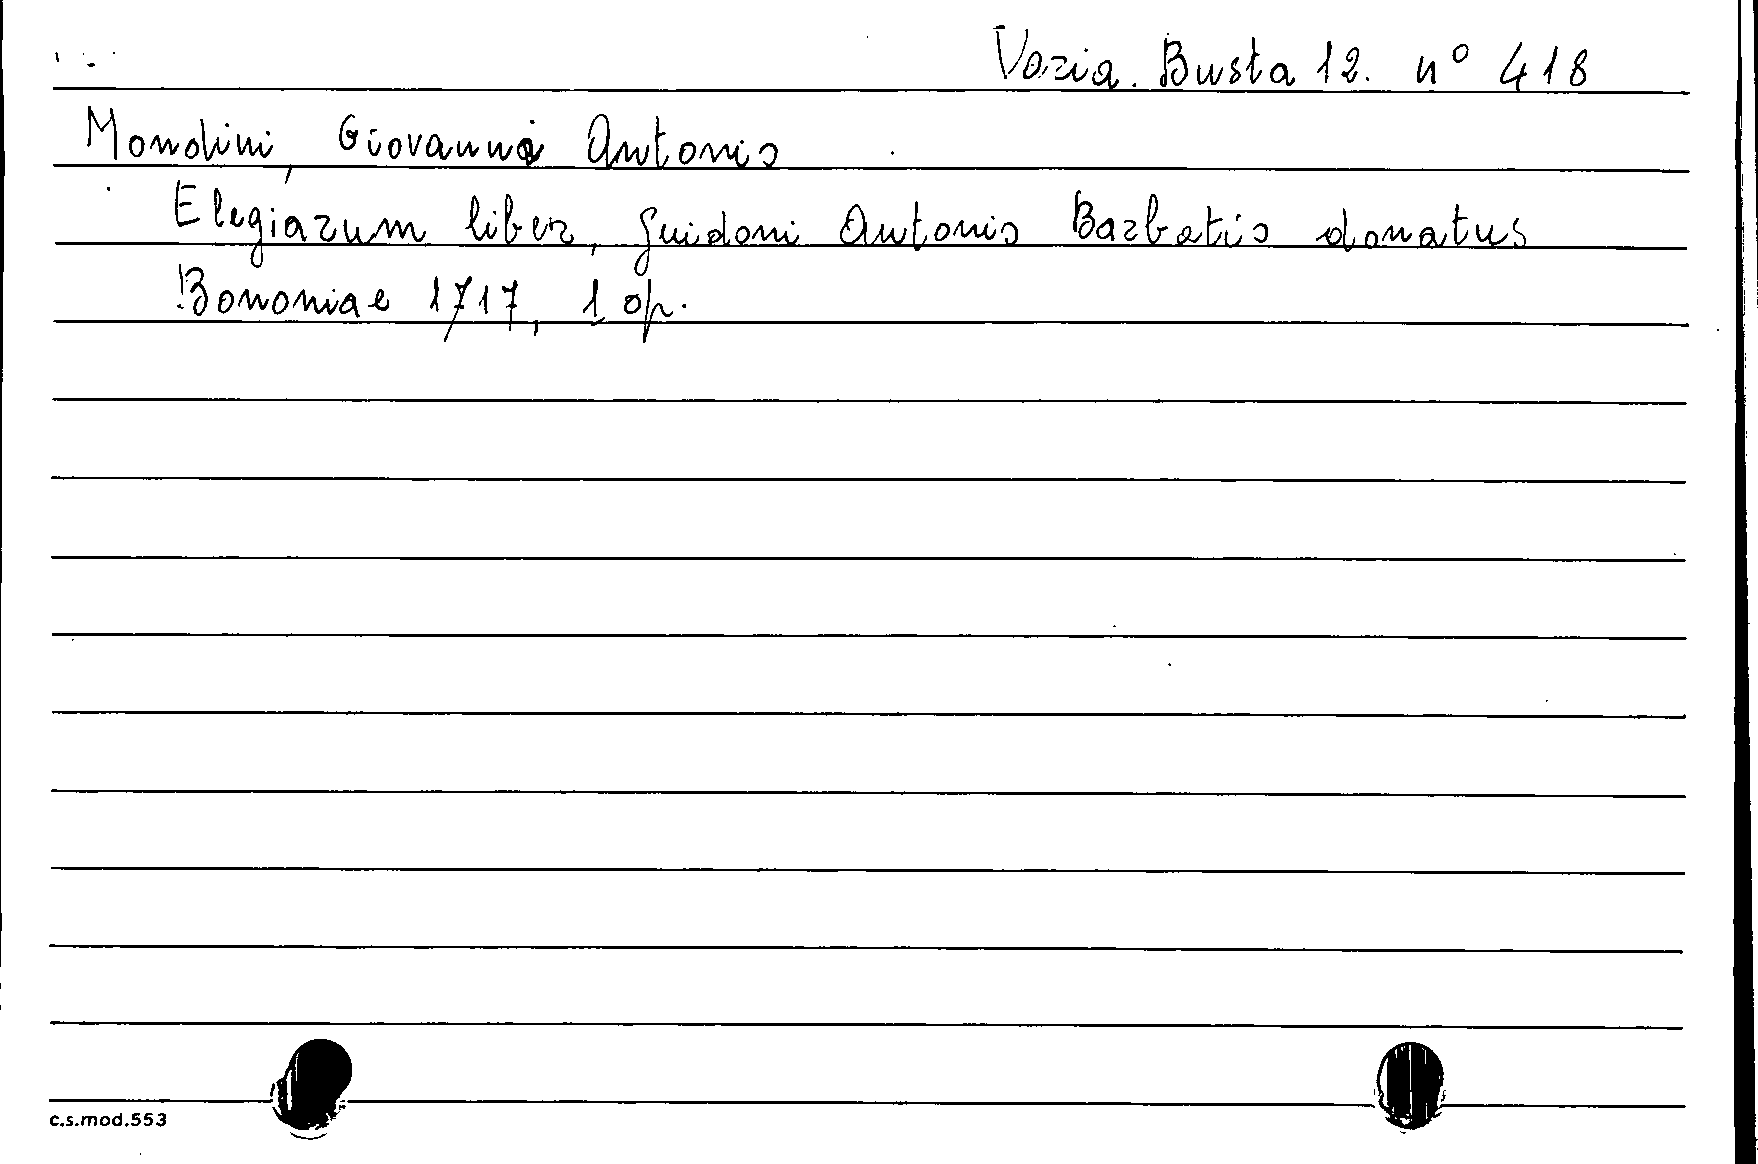 Varia. Busta 12. n° 418
Mondini, Giovanni Antonio
Elegiarum liber, Guidoni Antonio Barbatio donatus
Bononiae 1717, 1 op.
c.s.mod.553